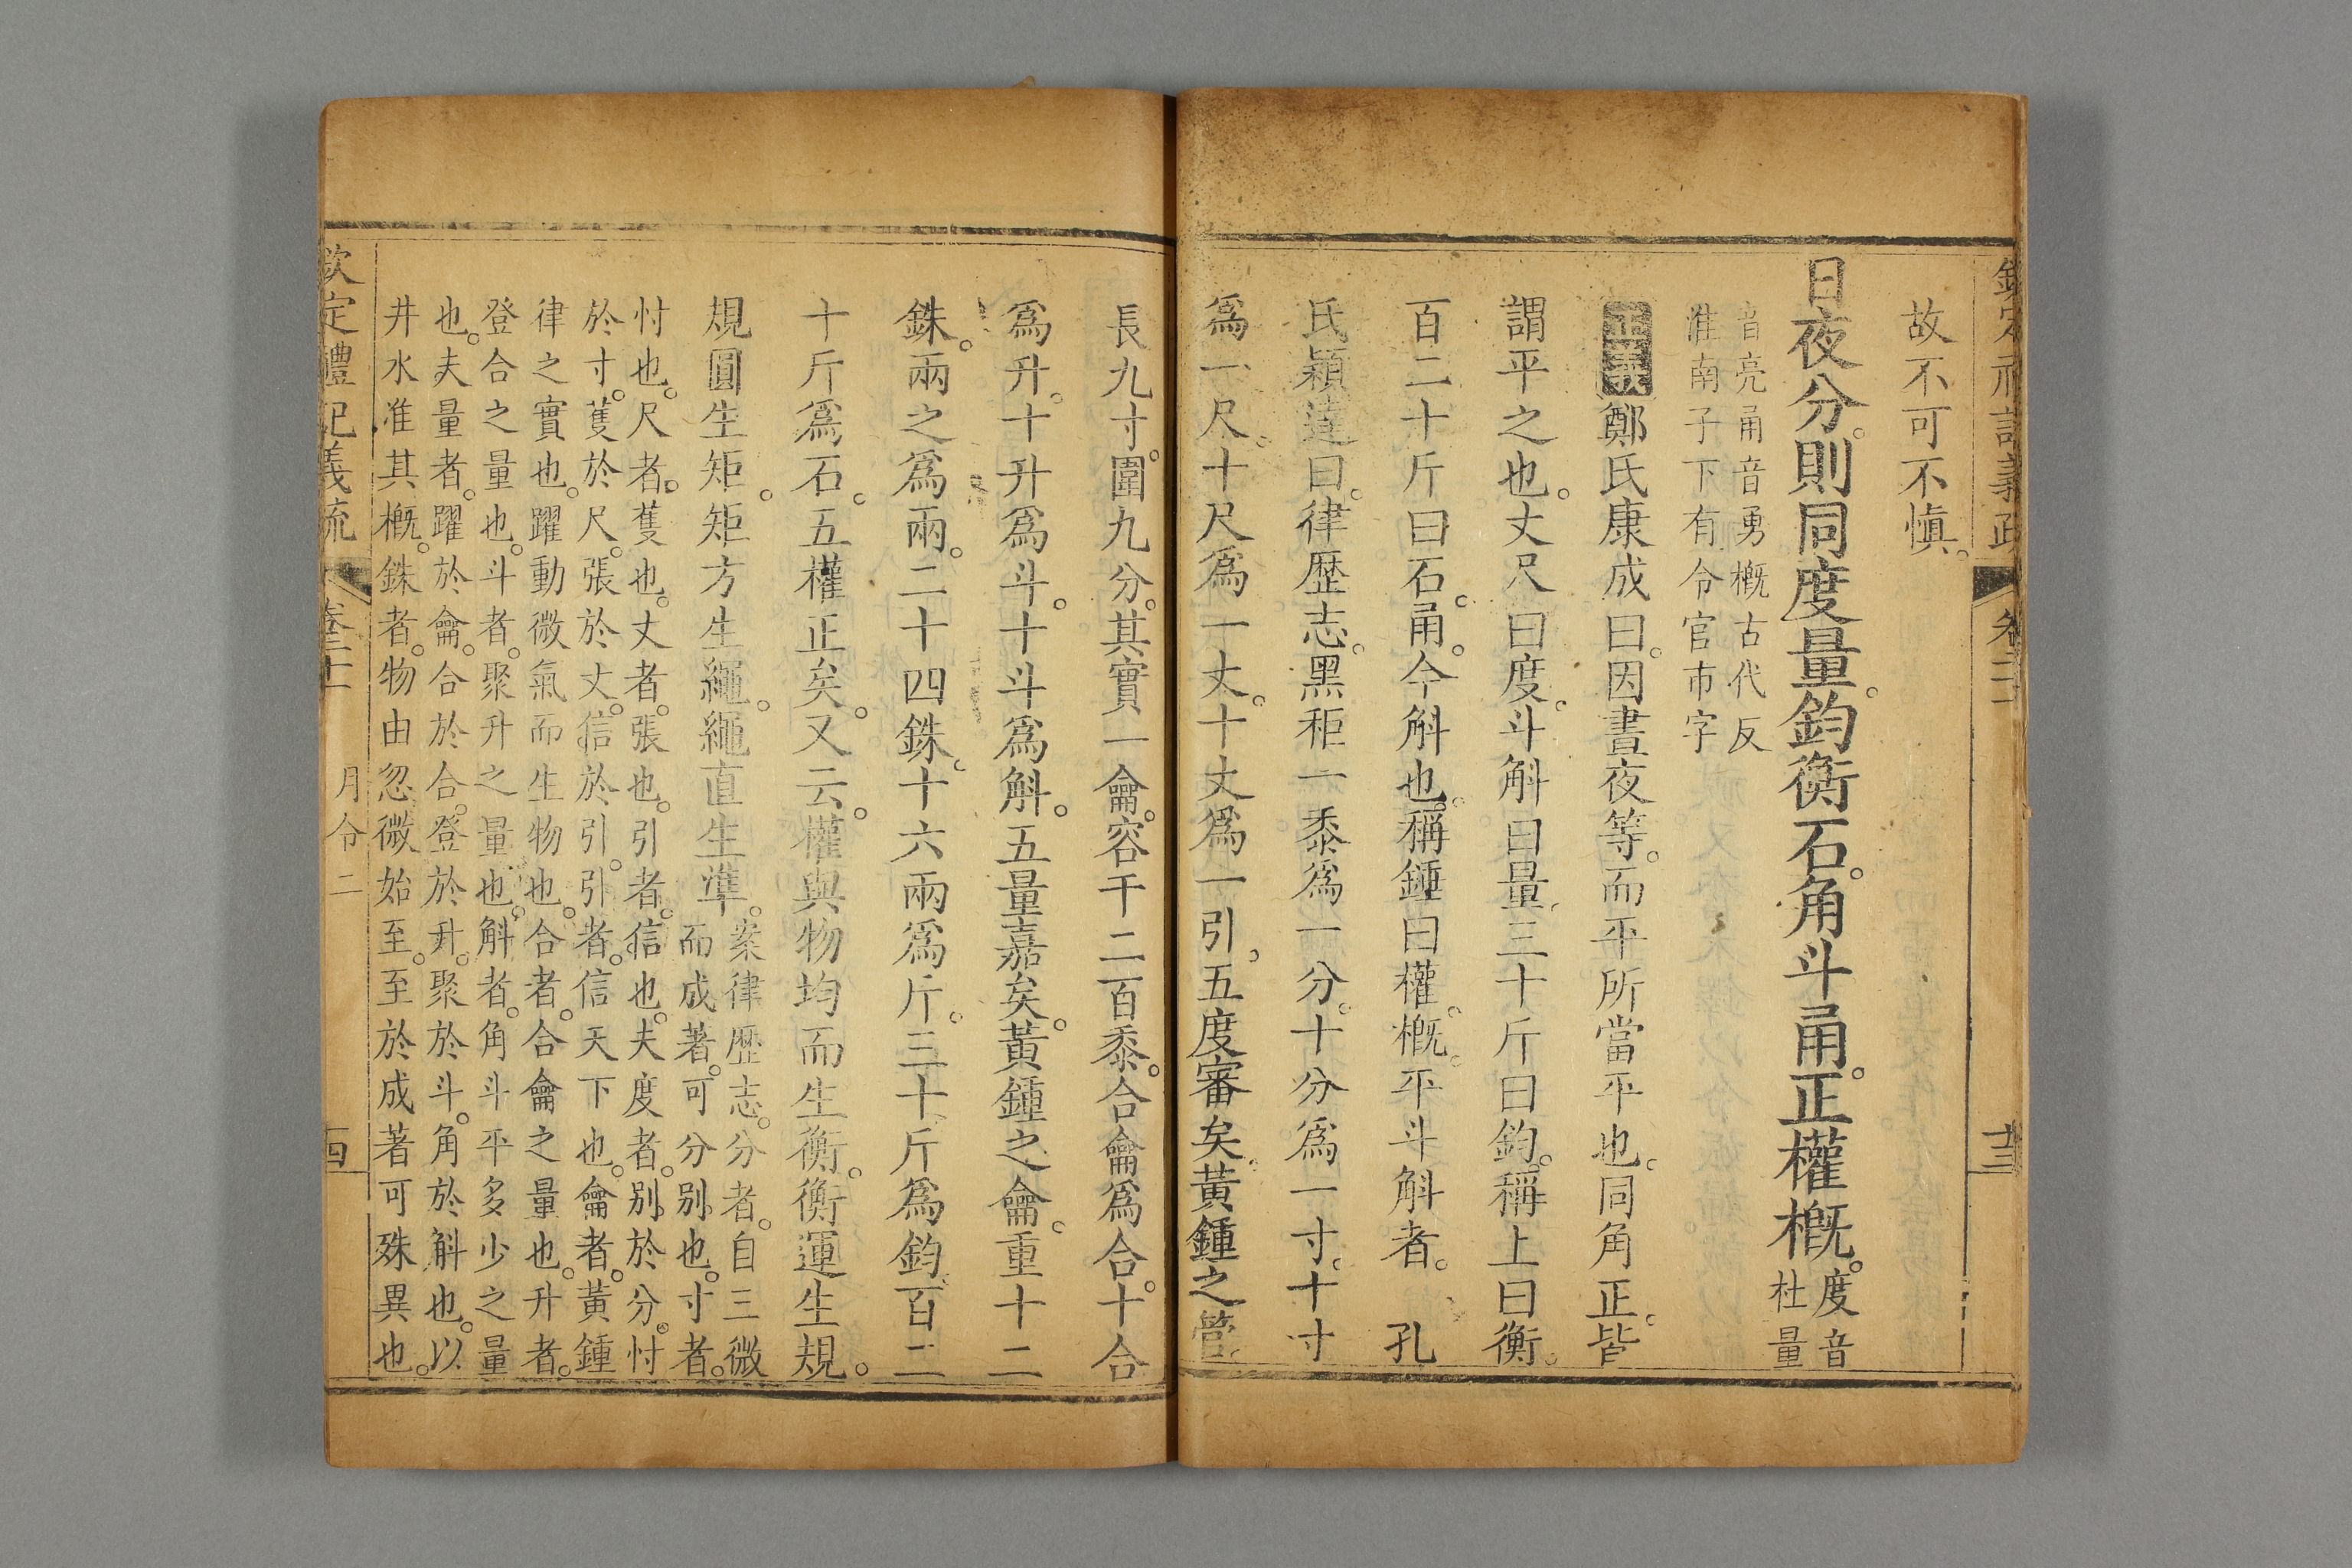 故不可不慎。
日夜分。則同度量。鈞衡石。角斗甬。正權槪。度音
杜量
音亮甬音勇槪古代反
淮南子下有令官市字
正義鄭氏康成曰。因晝夜等。而平所當平也。同角正。皆
謂平之也。丈尺曰度。斗斛曰量。三十斤曰鈞。稱上曰衡。
百二十斤曰石。甬。今斛也。稱錘曰權。槪。平斗斛者。孔
氏穎達曰。律歷志。黑秬一黍爲一分。十分爲一寸。十寸
爲一尺。十尺爲一丈。十丈爲一引。五度審矣。黃鍾之管。
長九寸。圍九分。其實一龠。容千二百黍。合龠爲合。十合
爲升。十升爲斗。十斗爲斛。五量嘉矣。黃鍾之龠。重十二
銖。兩之爲兩。二十四銖。十六兩爲斤。三十斤爲鈞。百二
十斤爲石。五權正矣。又云。權與物均而生衡。衡運生規。
規圓生矩。矩方生繩。繩直生準。案律歷志。分者。自三微
而成著。可分別也。寸者。
忖也。尺者。蒦也。丈者。張也。引者。信也。夫度者。別於分。忖
於寸。蒦於尺。張於丈。信於引。引者。信天下也。龠者。黃鍾
律之實也。躍動微氣而生物也。合者。合龠之量也。升者。
登合之量也。斗者。聚升之量也。斛者。角斗平多少之量
也。夫量者。躍於龠。合於合。登於升。聚於斗。角於斛也。以
井水准其槪。銖者。物由忽微始至。至於成著可殊異也。
欽定禮記義疏 卷二十 月令二